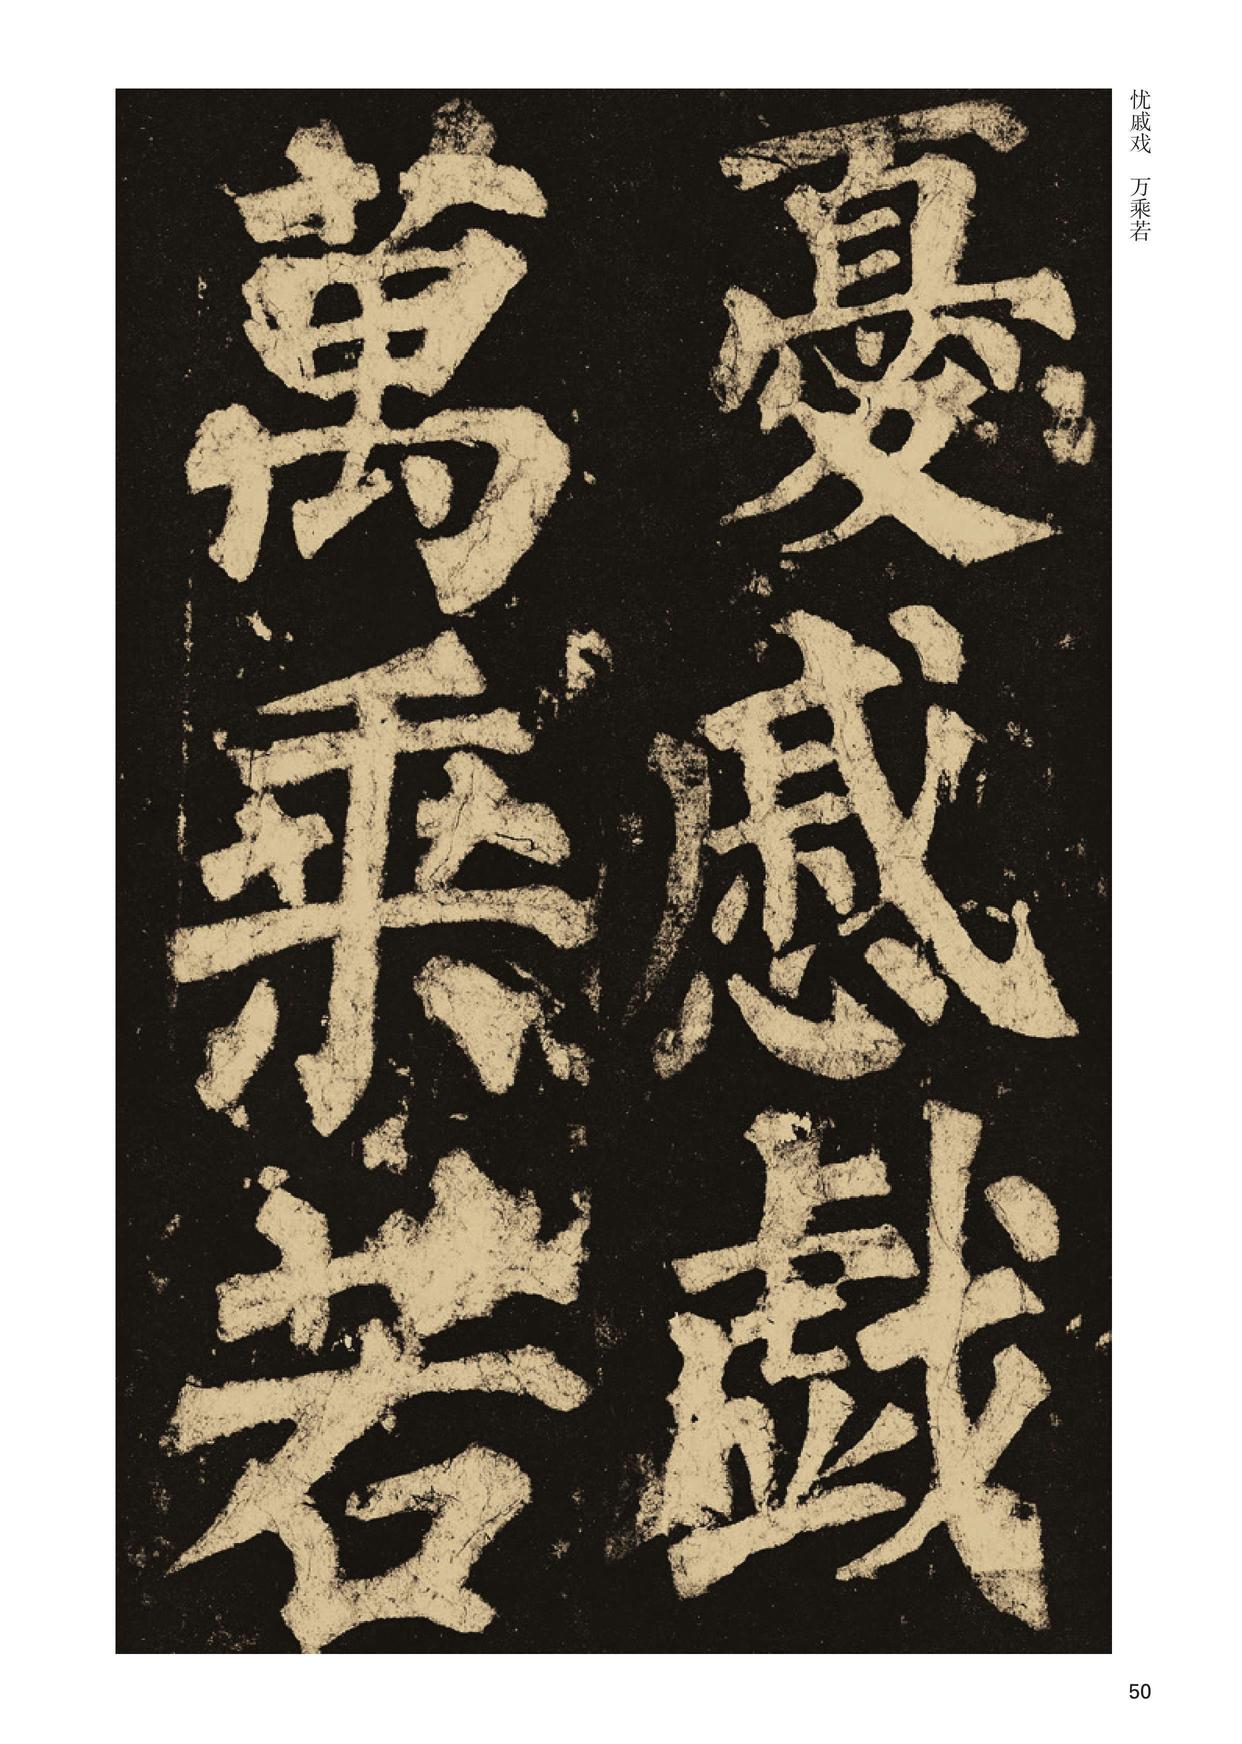 憂慼戱
萬乗若
忧戚戏 万乘若
50